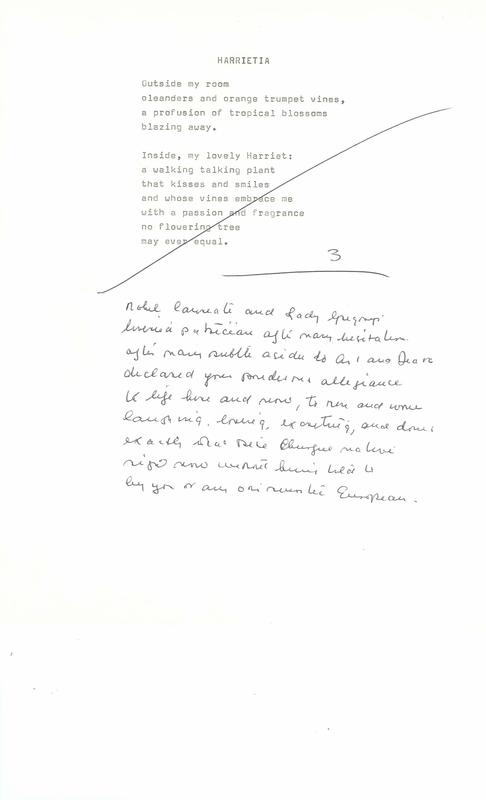 HARRIETIA
Outside my room
oleanders and orange trumpet vines,
a profusion of tropical blossoms
blazing away.
Inside, my lovely Harriet:
a walking talking plant
that kisses and smiles
and whose vines embrace me
with a passion and fragrance
no flowering tree
may ever equal.
3
Nobel laureate and Lady Gregory's
patrician after many hesitations
after many subtle asides to
declared your ponderous allegiance
to life here and now, to men and women
laughing, loving, and
exactly what
right now without being told to
by you or any European.